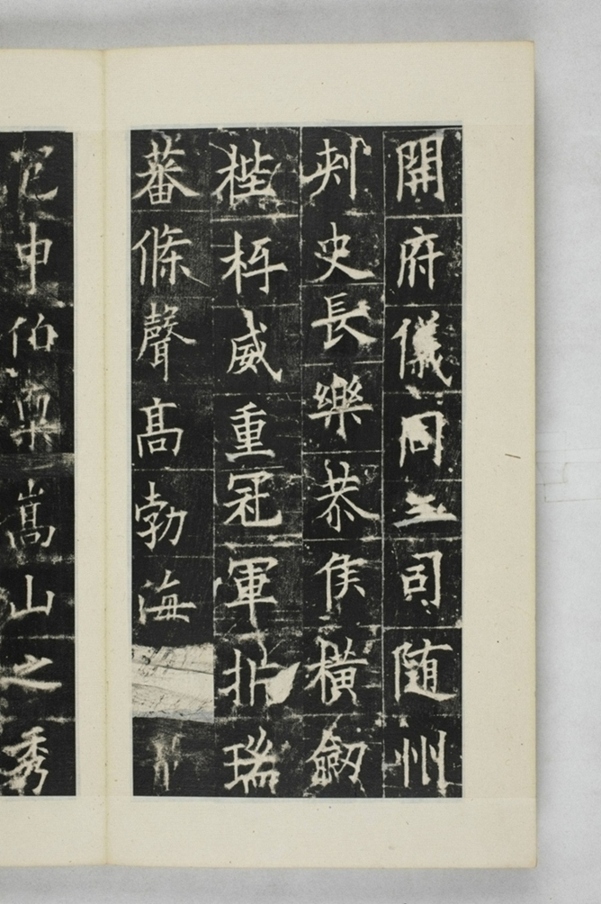 開府儀同三司随州
刾史長樂恭侯横劒
梐枑威重冠軍折瑞
蕃條聲高勃海
申伯嵩山之秀